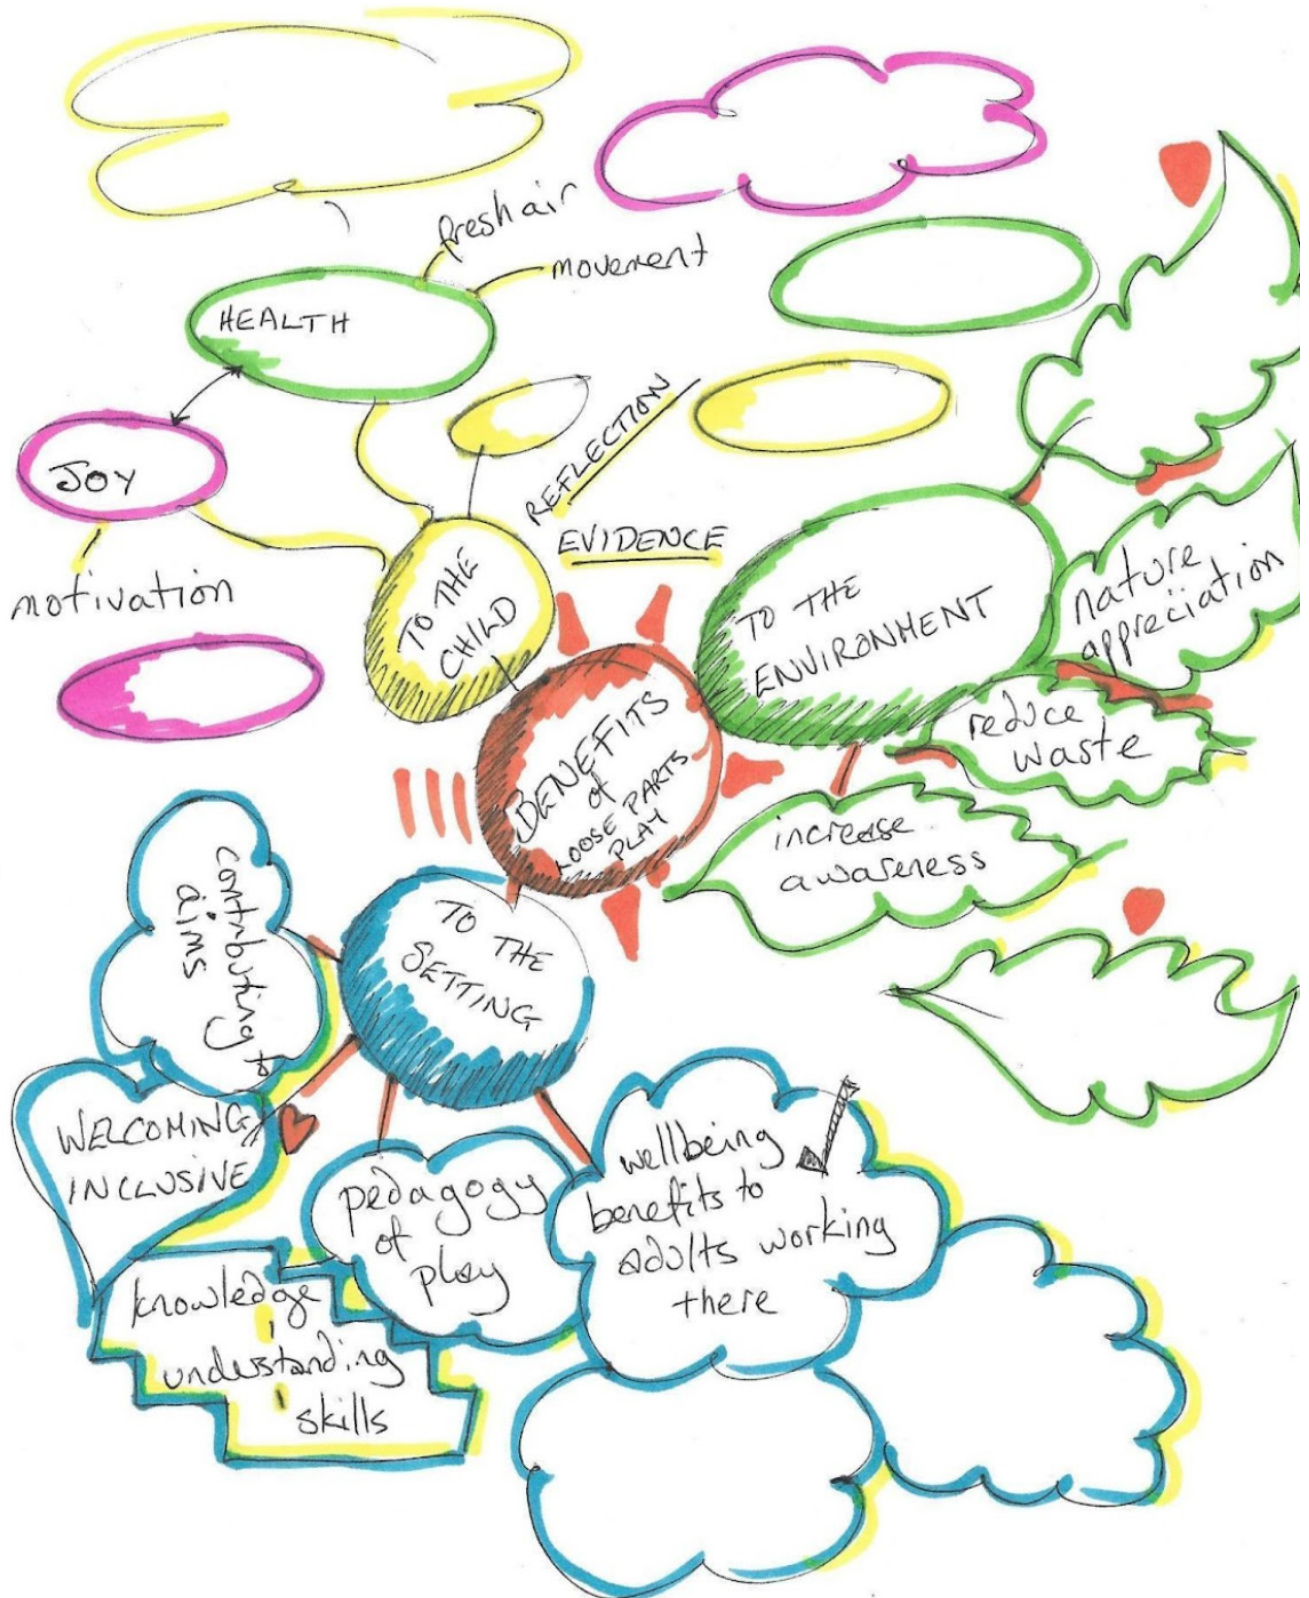 fresh air
movement
HEALTH
JOY
motivation
REFLECTION
EVIDENCE
TO THE
CHILD
TO THE
ENVIRONMENT
nature
appreciation
reduce
waste
increase
awareness
BENEFITS
of
LOOSE PARTS
PLAY
TO THE
SETTING
contributing to
aims
WELCOMING
INCLUSIVE
pedagogy
of
play
wellbeing
benefits to
adults working
there
knowledge
understanding
skills